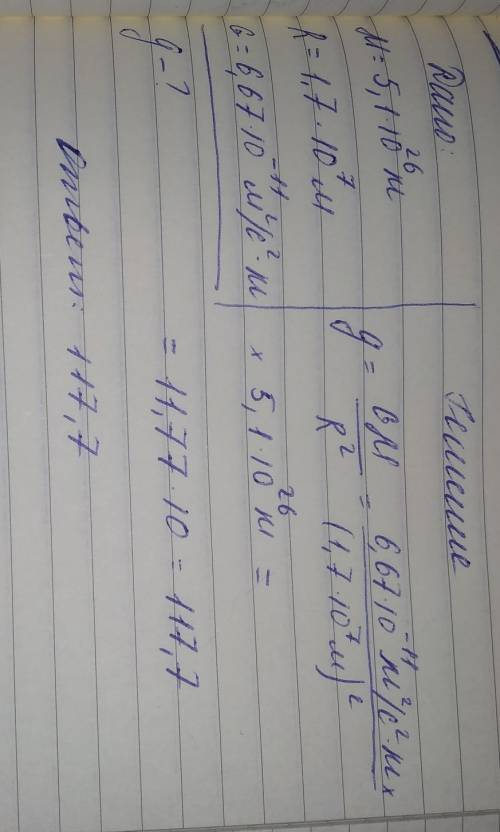 Дано:
M = 5,1·10²⁶ кг
R = 1,7·10⁷ м
G = 6,67·10⁻¹¹ м²/с²·кг
g - ?
Решение
g = GM / R² = 6,67·10⁻¹¹ м²/с²·кг x / (1,7·10⁷ м)²
x 5,1·10²⁶ кг =
= 11,77·10 = 117,7
Ответ: 117,7